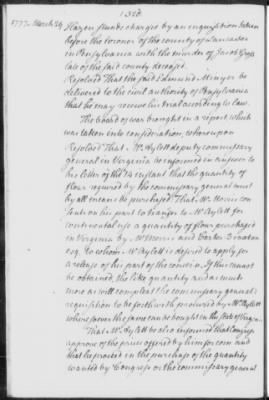 1777 March 24
Hazen stands charged by an inquisition taken
before the coroner of the county of Lancaster
in Pensylvania with the murder of Jacob
late of the said county deceased.
Resolved That the said Edmund be
delivered to the civil authority of Pensylvania
that he may receive his trial according to law.
The board of war brought in a report which
was taken into consideration, whereupon
Resolved That Mr. Aylett deputy commissary
general in Virginia be informed in answer to
his letter of the 14 instant that the quantity of
flour required by the commissary general must
by all means be purchased; That Mr. Morris con
sents on his part to transfer to Mr Aylett for
continental use a quantity of flour purchased
in Virginia by Mr Morris and Carter Braxton
esq. to whom Mr Aylett is desired to apply for
a release of his part of the concern. If this cannot
be obtained, the like quantity and so much
more as will compleat the commissary general's
requisition to be forthwith produced by Mr Aylett
wheresoever the same can be bought in the state of Virginia.
That Mr. Aylett be also informed that Congress
approve of the price offered by him for corn and
that he proceed in the purchase of the quantity
wanted by Congress or the commissary general